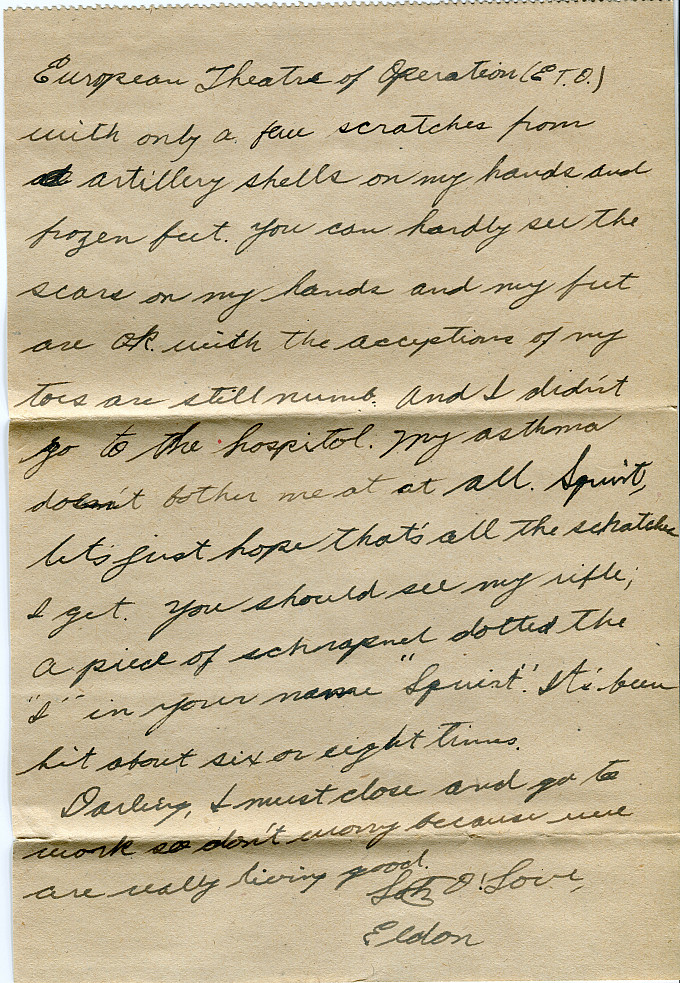 European Theatre of Operation (E.T.O.)
with only a few scratches from
artillery shells on my hands and
frozen feet. You can hardly see the
scars on my hands and my feet
are OK. with the acceptions of my
toes are still numb. And I didn't
go to the hospitol. My asthma
doesn't bother me at at all. Squirt,
let's just hope that's all the schatches
I get. You should see my rifle;
a piece of schrapnel dotted the
"I" in your name "Squirt". It's been
hit about six or eight times.
Darling, I must close and go to
work so don't worry because we
are really living good.
Lots O' Love,
Eldon